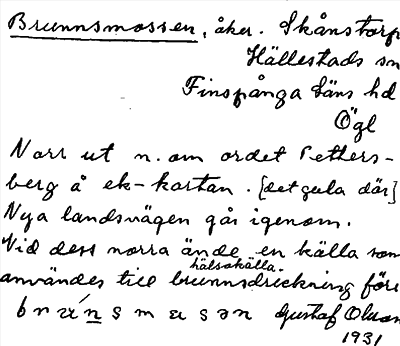 Brunnsmossen, åker. Skånstorp
Hällestads sn
Finspånga läns hd
Ögl
Norr ut n. om ordet Petters-
berg å ek-kartan. [det gula där]
Nya landsvägen går igenom.
Vid dess norra ände en källa som
hälsokälla.
användes till brunnsdrickning förr
Gustaf Olson
1931